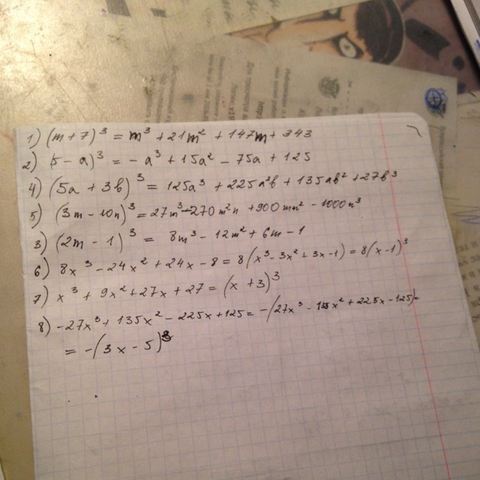 1) (m + 7)³ = m³ + 21m² + 147m + 343
2) (5 - a)³ = - a³ + 15a² - 75a + 125
4) (5a + 3b)³ = 125a³ + 225a²b + 135ab² + 27b³
5) (3m - 10n)³ = 27m³ - 270m²n + 900mn² - 1000n³
3) (2m - 1)³ = 8m³ - 12m² + 6m - 1
6) 8x³ - 24x² + 24x - 8 = 8(x³ - 3x² + 3x - 1) = 8(x - 1)³
7) x³ + 9x² + 27x + 27 = (x + 3)³
8) - 27x³ + 135x² - 225x + 125 = -(27x³ - 135x² + 225x - 125) =
= -(3x - 5)³